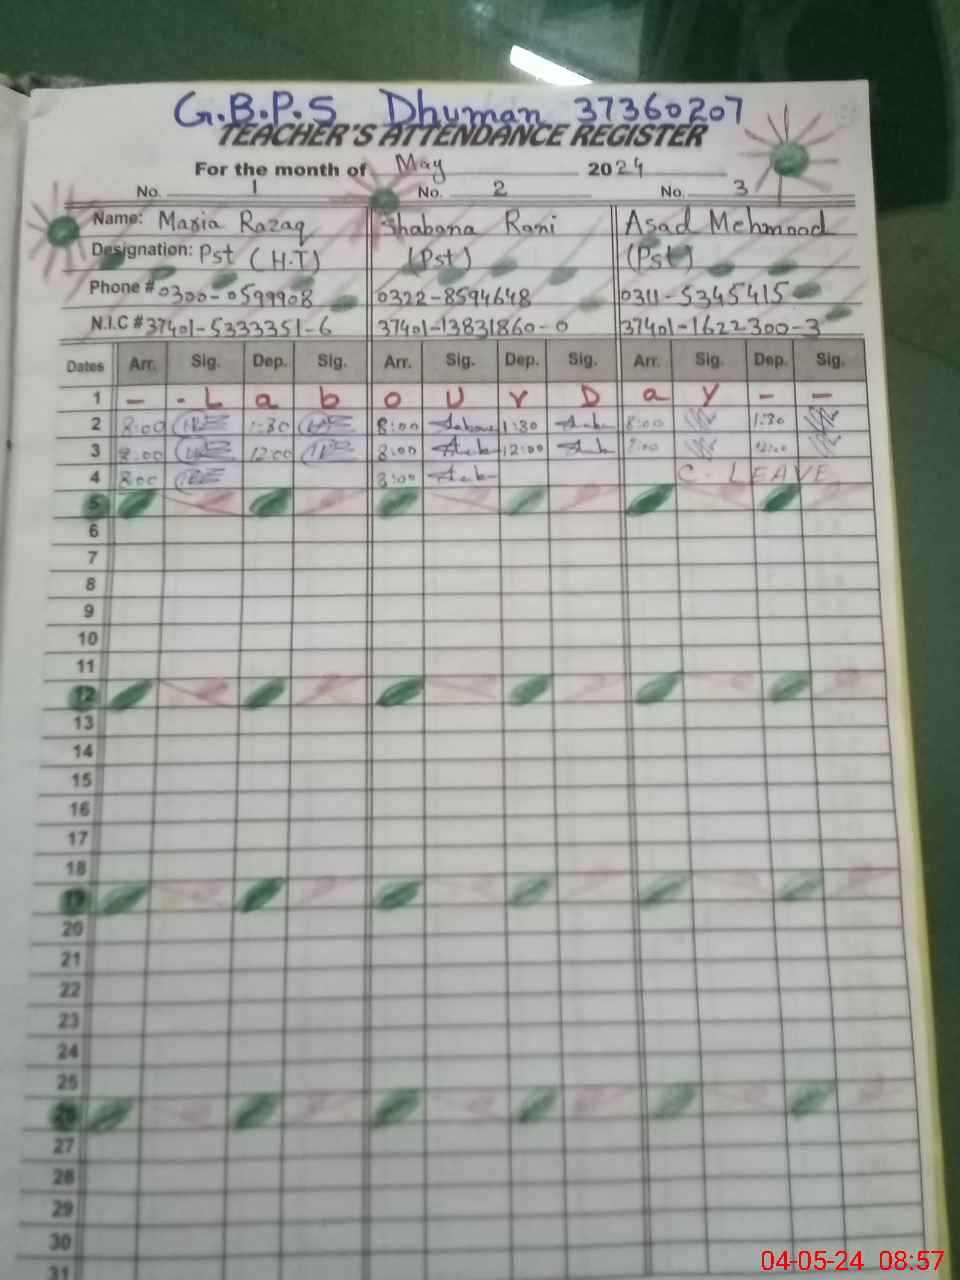 G.B.P.S Dhuman 37360207
TEACHER'S ATTENDANCE REGISTER
For the month of May 2024
No. 1 No. 2 No. 3
Name: Maria Razaq Shabana Rani Asad Mehmood
Designation: Pst (H.T) (Pst) (Pst)
Phone # 0300-0599908 0322-8594648 0311-5345415
N.I.C # 37401-5333351-6 37401-13831860-0 37401-1622300-3
Dates Arr. Sig. Dep. Sig. Arr. Sig. Dep. Sig. Arr. Sig. Dep. Sig.
1 - - L a b o u r D a y - -
2 8:00 1:30 8:00 1:30 8:00 1:30
3 8:00 12:00 8:00 12:00 8:00 12:00
4 8:00 8:00 C-LEAVE
5
6
7
8
9
10
11
12
13
14
15
16
17
18
19
20
21
22
23
24
25
26
27
28
29
30
31
04-05-24 08:57